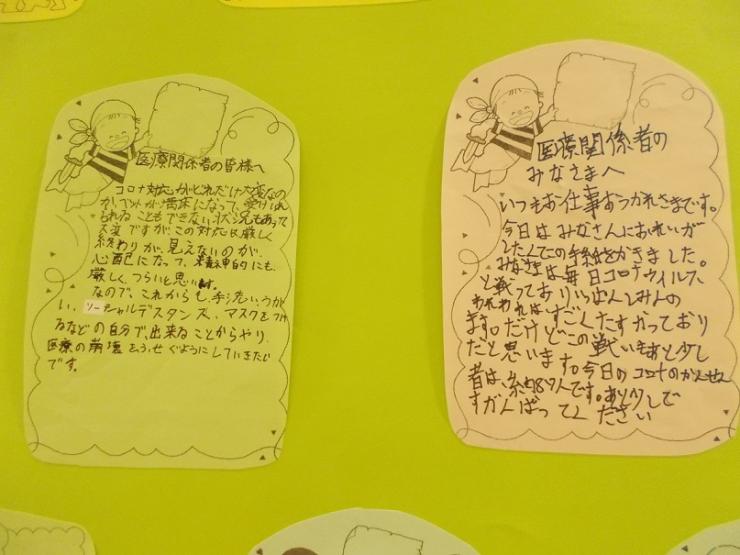 医療関係者の皆様へ
コロナ対応がどれだけ大変なの
か、ベットが満床になって、受け入れ
られることもできない状況もあって
大変ですが、この対応は厳しく
終わりが、見えないのが、
心配になって、精神的にも
厳しく、つらいと思います。
なので、これからも、手洗いうが
い、ソーシャルデスタンス、マスクをつけ
るなどの自分で、出来ることからやり、
医療の崩壊をふせぐようにしていきたい
です。
医療関係者の
みなさまへ
いつもお仕事おつかれさまです。
今日はみなさんにおれいが
したくてこの手紙をかきました。
みなさまは毎日コロナウイルス
と戦っておりいっぱんしみんの
われわれはすごくたすかっており
ます。だけどこの戦いもあと少し
だと思います。今日のコロナのかんせん
者は、約87人です。あと少しで
すがんばってください